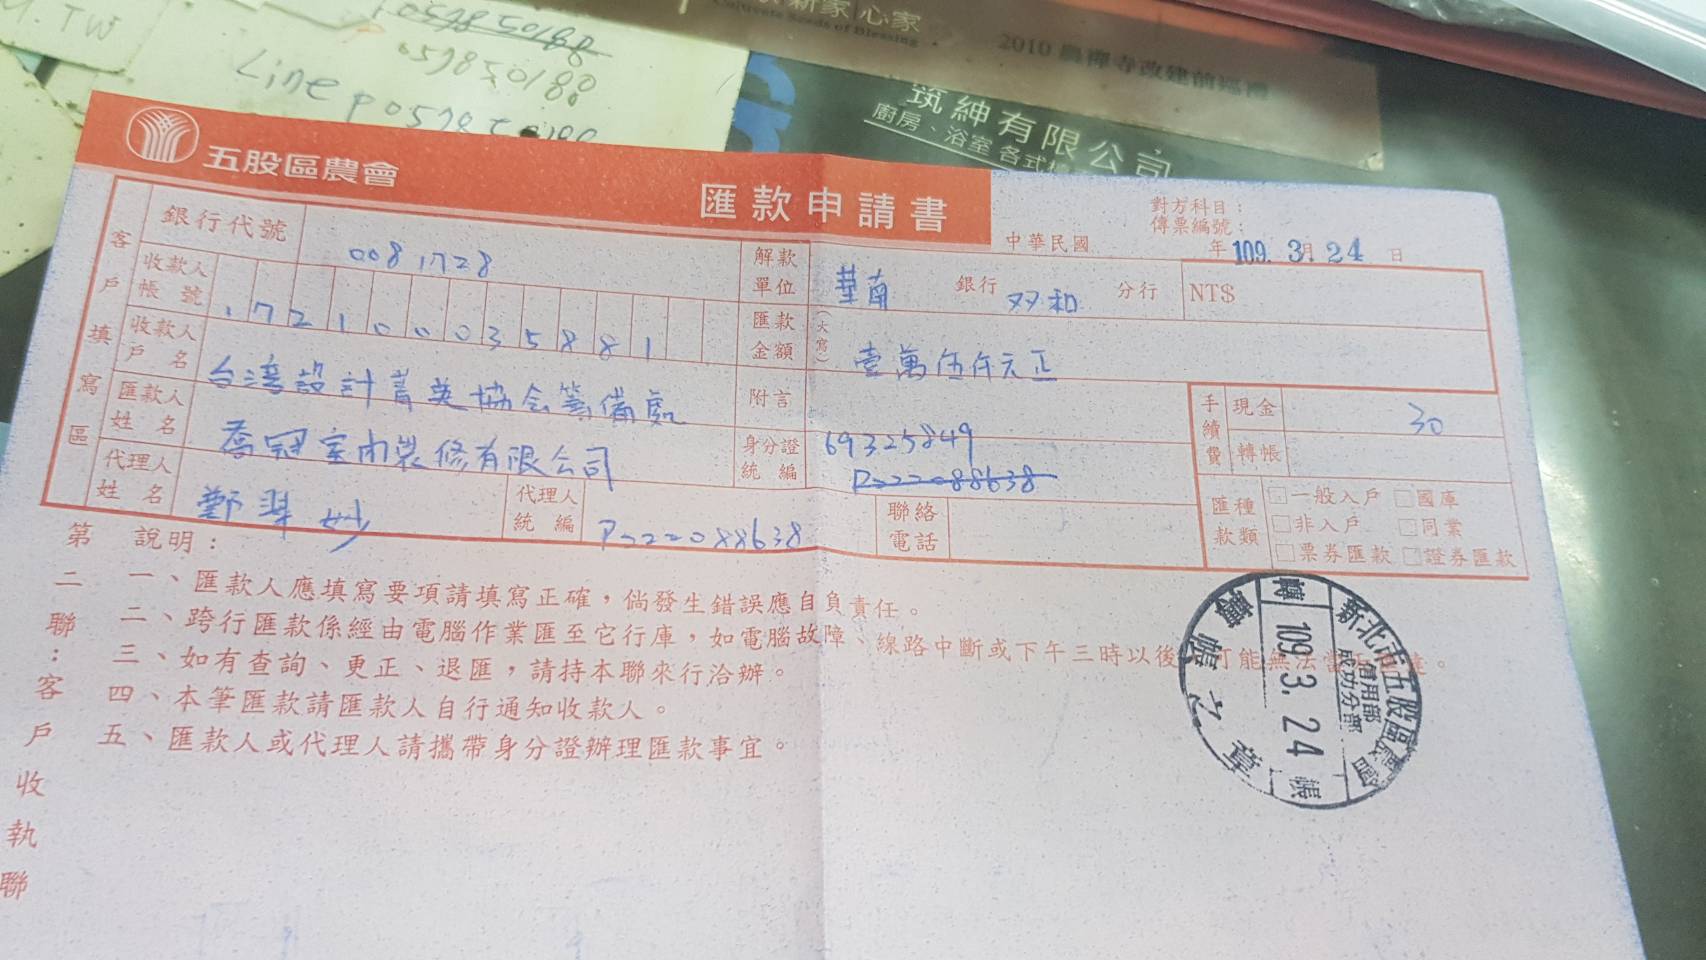 M.TW
059850188
059850188
Line p059850188
新家|心家
Cultivate Seeds of Blessing
2010 農禪寺改建前巡禮
筑紳有限公司
廚房、浴室 各式
五股區農會
匯款申請書
對方科目：
傳票編號：
中華民國 年 109. 3月 24 日
客戶填寫區
銀行代號 0081728
解款單位 華南 銀行 双和 分行
NT$
收款人帳號 172100035881
匯款金額 (大寫) 壹萬伍仟元正
收款人戶名 台湾設計菁英協会籌備處
附言
手續費 現金 30
轉帳
匯款人姓名 喬冠室內裝修有限公司
身分證統編 69325849
P222088638
代理人姓名 鄭翠妙
代理人統編 P222088638
聯絡電話
匯款種類 □一般入戶 □國庫
□非入戶 □同業
□票券匯款 □證券匯款
第二聯：客戶收執聯
說明：
一、匯款人應填寫要項請填寫正確，倘發生錯誤應自負責任。
二、跨行匯款係經由電腦作業匯至它行庫，如電腦故障、線路中斷或下午三時以後 可能無法當
三、如有查詢、更正、退匯，請持本聯來行洽辦。
四、本筆匯款請匯款人自行通知收款人。
五、匯款人或代理人請攜帶身分證辦理匯款事宜。
新北市五股區農會
信用部
成功分部
轉 109.3.24 帳
轉帳之章